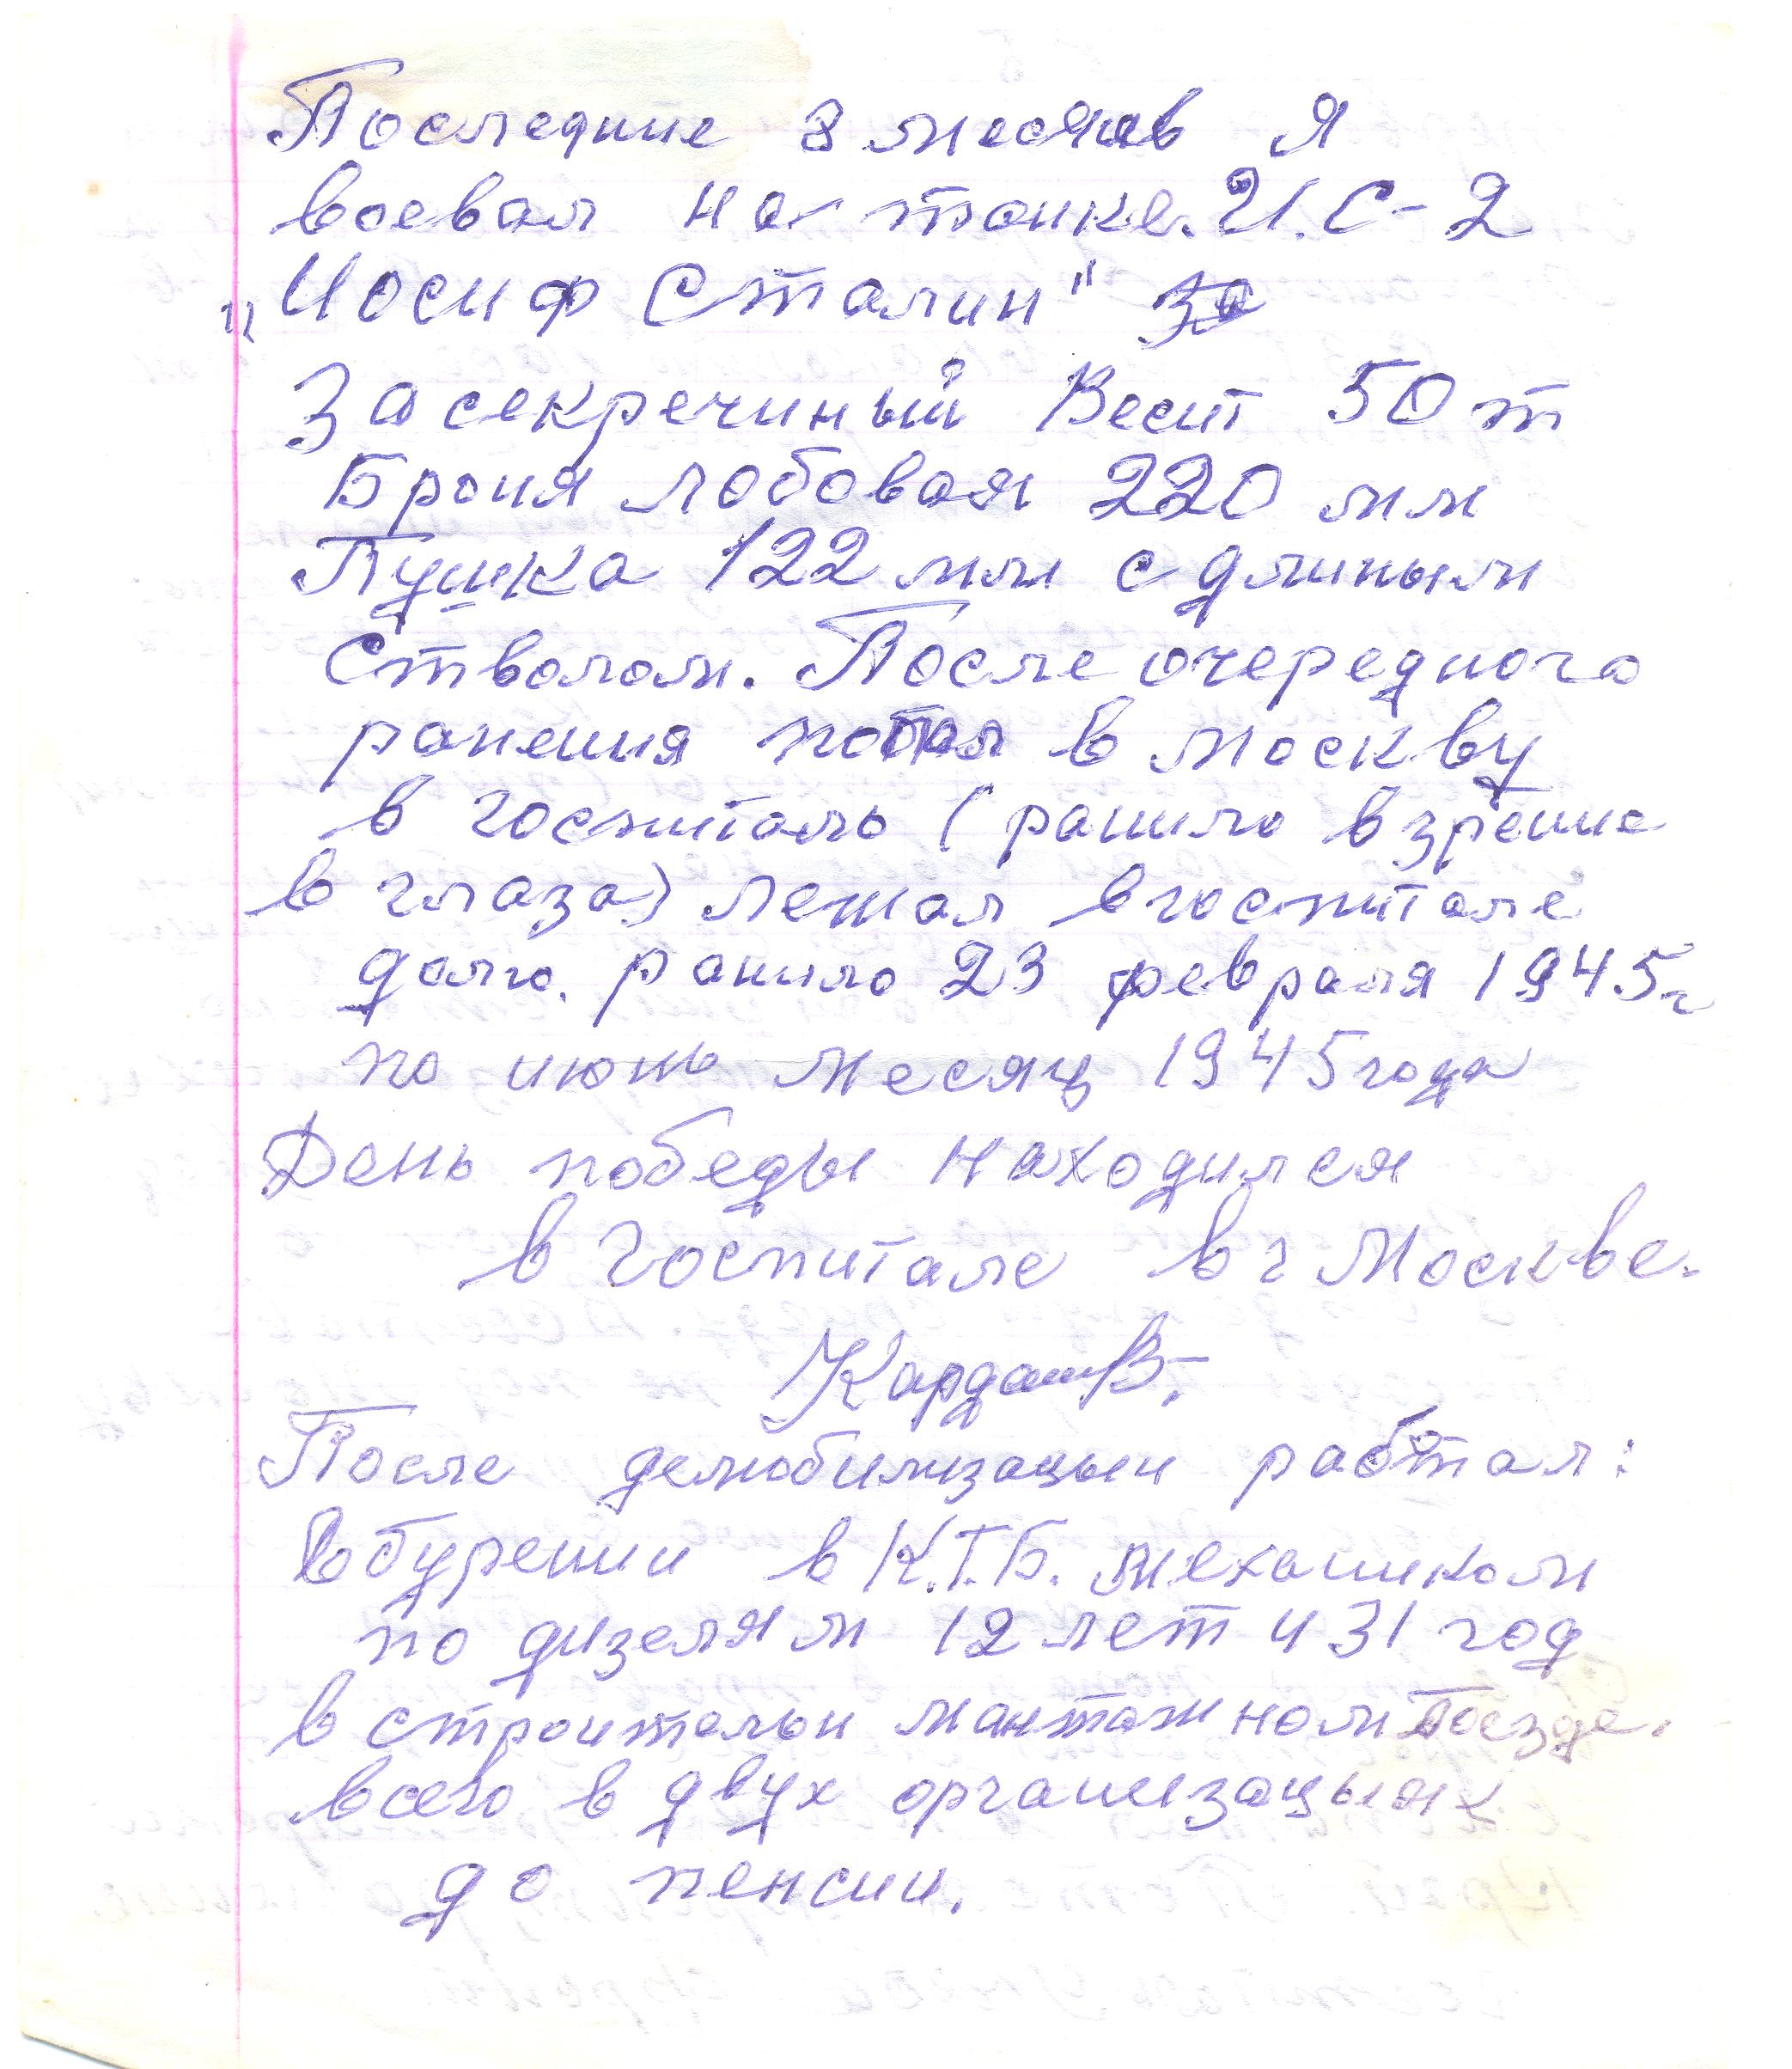 Последние 8 месяцев я
воевал на танке. И.С-2
„Иосиф Сталин" за
Засекречиный Весит 50 т
Броня лобовая 220 мм
Пушка 122 мм с длиным
Стволом. После очередного
ранения попал в москву
в госпиталь (ранило в зрение
в глаза) лежал в госпитале
долго. ранило 23 февраля 1945 г
по июнь месяц 1945 года
День победы находился
в госпитале в г Москве.
Кардаш В.
После демобилизацыи работал:
в бурении в К.Г.Б. механиком
по дизелям 12 лет и 31 год
в строительн мантажном Поезде.
всего в двух организацыях
до пенсии.